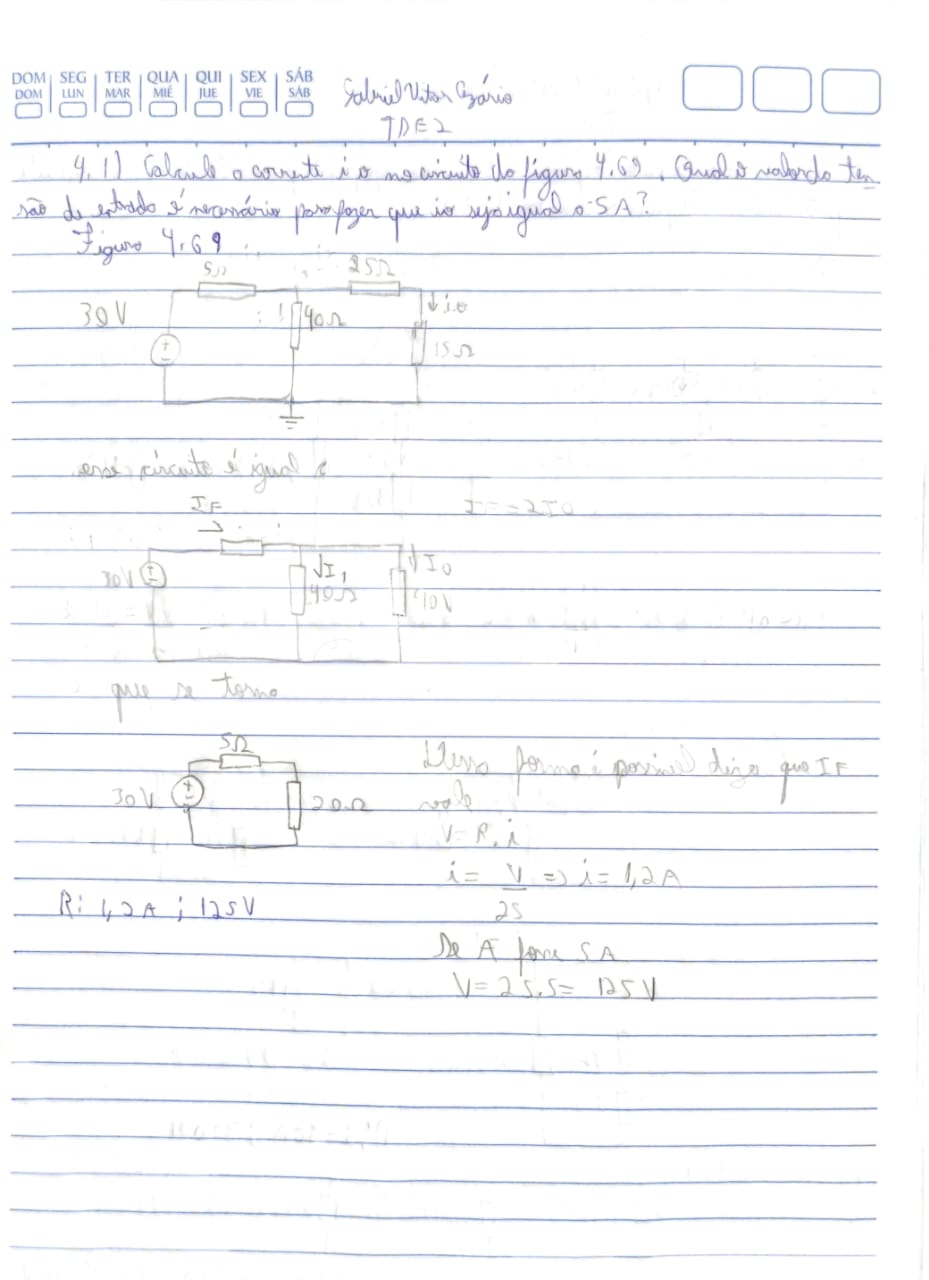 DOM SEG TER QUA QUI SEX SÁB
DOM LUN MAR MIÉ JUE VIE SÁB
Gabriel Vitor Cezário
TDE2
4.1) Calcule a corrente i o no circuito da figura 4.69. Qual o valor da ten
são de entrada é necessário para fazer que io seja igual a 5A?
Figura 4.69
5Ω 25Ω
30V 40Ω ↓i.o
15Ω
esse circuito é igual a
IF
I = 2I0
30V ↓I1 ↓I0
40Ω 40V
que se torna
5Ω
30V 20Ω
Dessa forma é possivel dizer que IF
vale
V=R.i
i= V/25 => i= 1,2A
R: 1,2A ; 125V
Se A fosse 5A
V= 25.5= 125V